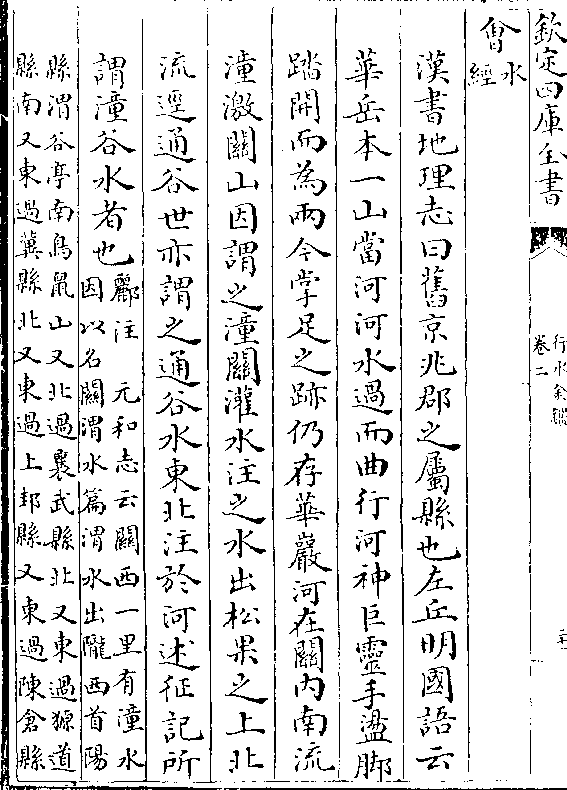 欽定四庫全書
行水金鑑
卷二
會水
經
漢書地理志曰舊京兆郡之屬縣也左丘明國語云
華岳本一山當河河水過而曲行河神巨靈手盪脚
踏開而為兩今掌足之跡仍存華巖河在關内南流
潼激關山因謂之潼關灌水注之水出松果之上北
流逕通谷世亦謂之通谷水東北注於河述征記所
謂潼谷水者也
酈注　元和志云關西一里有潼水
因以名關渭水篇渭水出隴西首陽
縣渭谷亭南鳥鼠山又北過襄武縣北又東過獂道
縣南又東過冀縣北又東過上邽縣又東過陳倉縣